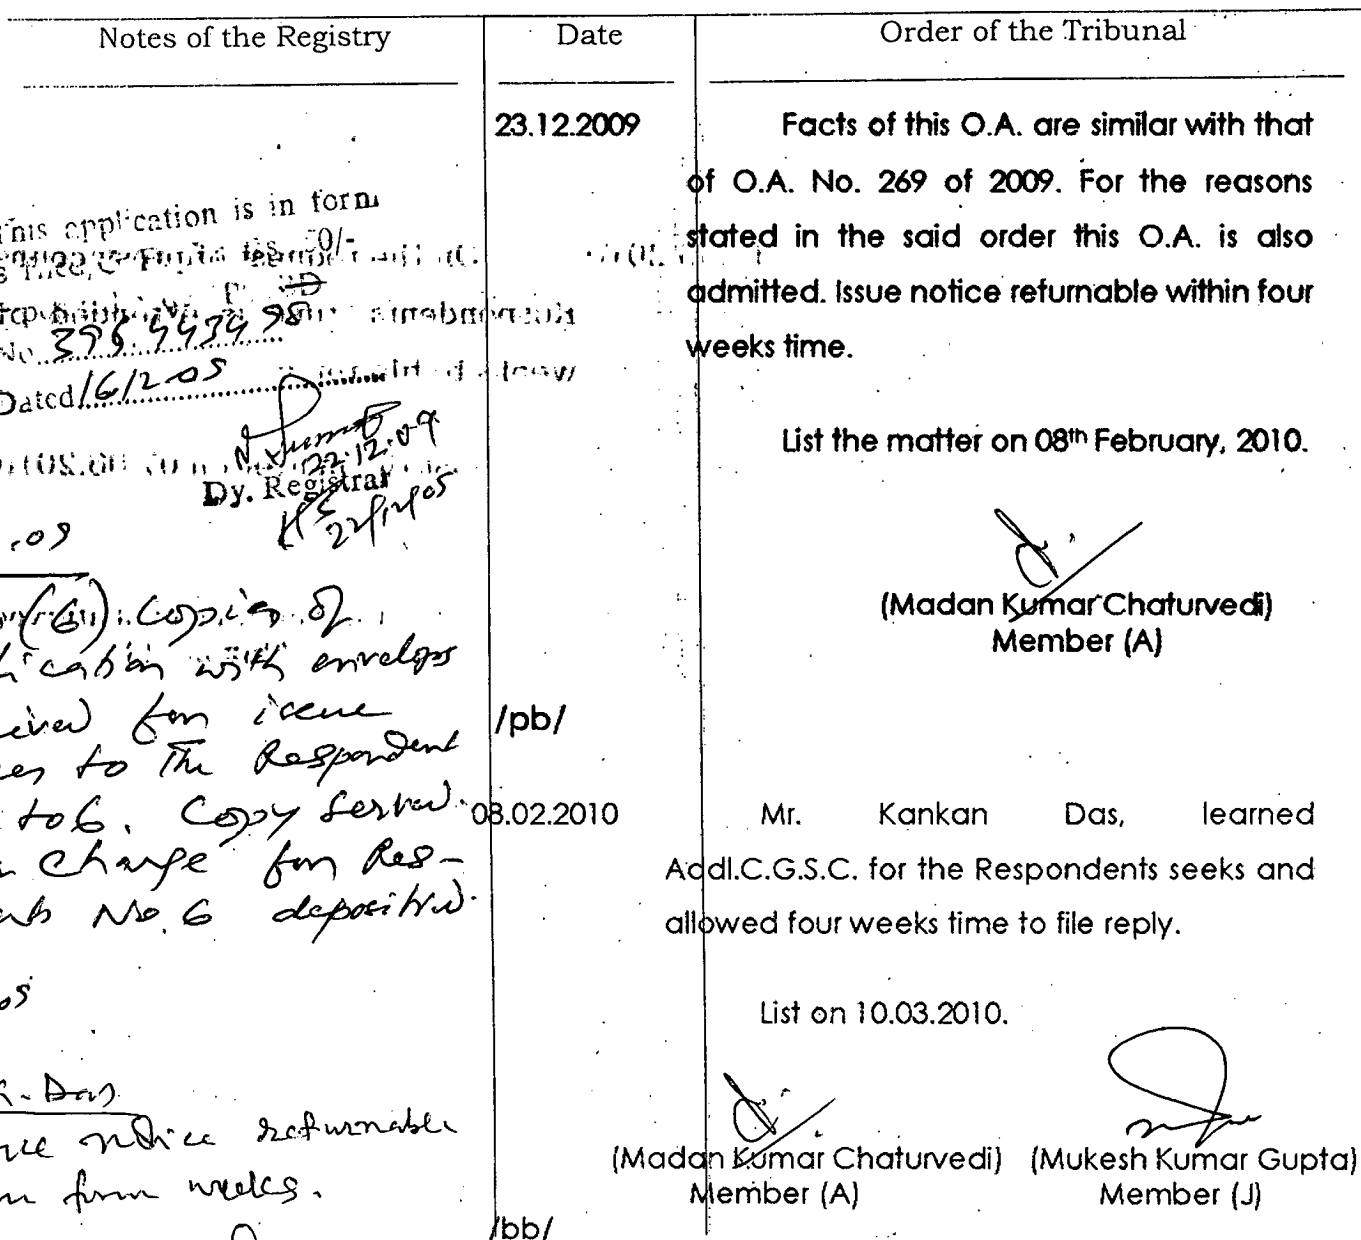 Notes of the Registry
Date
Order of the Tribunal
This application is in form
0/-
No. 396 443498
Dated
22.12.09
Dy. Registrar
.09
(6) Copies of
with envelops
for issue
to The Respondent
to 6. Copy Served.
Charge for Res-
No. 6 deposited.
. Das
notice returnable
weeks.
23.12.2009
Facts of this O.A. are similar with that
of O.A. No. 269 of 2009. For the reasons
stated in the said order this O.A. is also
admitted. Issue notice returnable within four
weeks time.
List the matter on 08th February, 2010.
(Madan Kumar Chaturvedi)
Member (A)
/pb/
08.02.2010
Mr. Kankan Das, learned
Addl.C.G.S.C. for the Respondents seeks and
allowed four weeks time to file reply.
List on 10.03.2010.
(Madan Kumar Chaturvedi) (Mukesh Kumar Gupta)
Member (A) Member (J)
/bb/